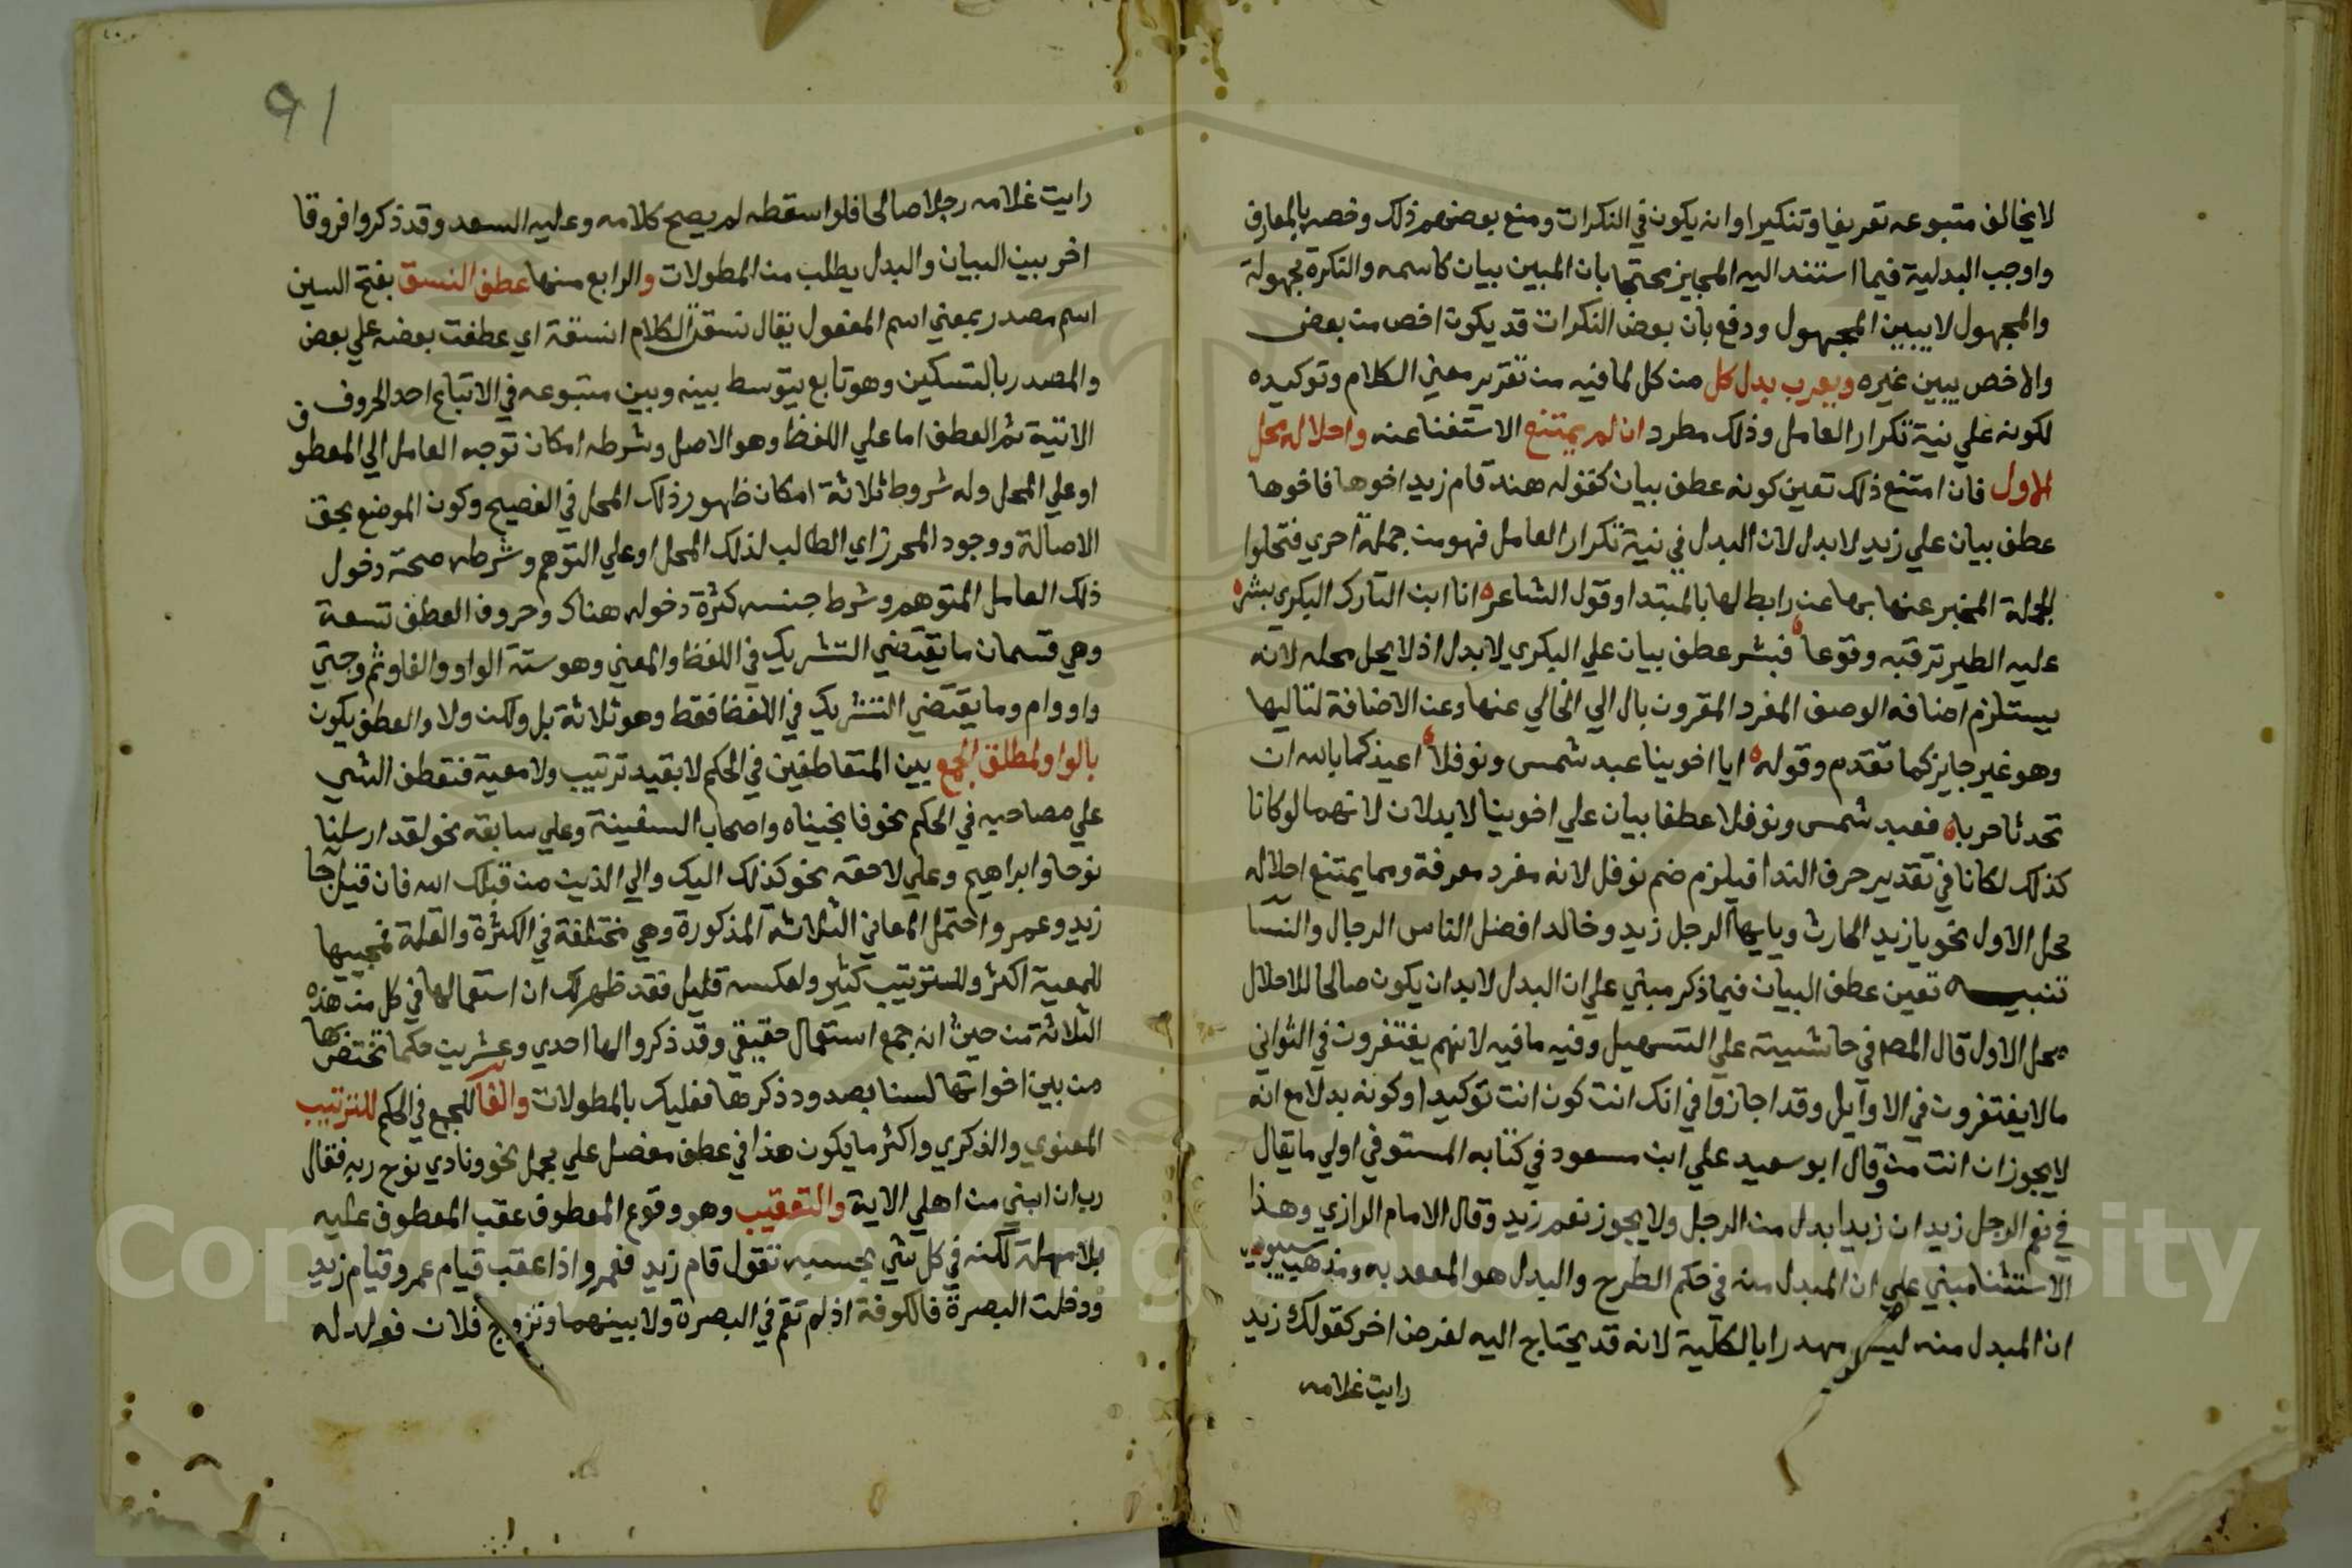 لا يخالف متبوعه تعريفا وتنكيرا وانه يكون في النكرات ومنع بعضهم ذلك وخصه بالمعارف
واوجب البدلية فيما استند اليه المجيز محتجا بان المبين بيان كاسمه والنكرة مجهولة
والمجهول لا يبين المجهول ودفع بان بعض النكرات قد يكون اخص من بعض
والاخص يبين غيره ويعرب بدل كل من كل لما فيه من تقرير معني الكلام وتوكيده
لكونه علي نية تكرار العامل وذلك مطرد ان لم يمتنع الاستغنا عنه واحلاله محل
الاول فان امتنع ذلك تعين كونه عطف بيان كقوله هند قام زيد اخوها فاخوها
عطف بيان علي زيد لا بدل لان البدل في نية تكرار العامل فهو من جملة اخري فتخلوا
الجملة المخبر عنها بها عن رابط لها بالمبتدا وقول الشاعر انا ابن التارك البكري بشر
عليه الطير ترقبه وقوعا فبشر عطف بيان علي البكري لا بدل اذ لا يحل محله لانه
يستلزم اضافه الوصف المفرد المقرون بال الي الخالي عنها وعن الاضافة لتاليها
وهو غير جايز كما تقدم وقوله ايا اخوينا عبد شمس ونوفلا اعيذكما بالله ان
تحدثا حربا فعبد شمس ونوفلا عطفا بيان علي اخوينا لا بدلان لانهما لو كانا
كذلك لكانا في تقدير حرف الندا فيلزم ضم نوفل لانه مفرد معرفة ومما يمتنع احلاله
محل الاول نحو يا زيد الحارث ويا يها الرجل زيد وخالد افضل الناس الرجال والنسا
تنبيه تعين عطف البيان فيما ذكر مبني علي ان البدل لا بد ان يكون صالحا للاحلال
محل الاول قال المصـ في حاشيته علي التسهيل وفيه ما فيه لانهم يغتفرون في الثواني
ما لا يغتفرون في الاوايل وقد اجازوا في انك انت كون انت توكيدا وكونه بدلا مع انه
لا يجوز ان انت من وقال ابو سعيد علي ابن مسعود في كتابه المستوفي اولي ما يقال
في نعم الرجل زيد ان زيدا بدل من الرجل ولا يجوز نعم زيد وقال الامام الرازي وهذا
الاستثنا مبني علي ان المبدل منه في حكم الطرح والبدل هو المعمد به ومذهب سيبويه
ان المبدل منه ليس مهدرا بالكلية لانه قد يحتاج اليه لغرض اخر كقولك زيد
رايت غلامه
91
رايت غلامه رجلا صالحا فلو اسقطه لم يصح كلامه وعليه السعد وقد ذكروا فروقا
اخر بين البيان والبدل يطلب من المطولات والرابع منها عطف النسق بفتح السين
اسم مصدر بمعني اسم المفعول يقال نسقت الكلام انسقه اي عطفت بعضه علي بعض
والمصدر بالتسكين وهو تابع يتوسط بينه وبين متبوعه في الاتباع احد الحروف
الاتية ثم العطف اما علي اللفظ وهو الاصل وشرطه امكان توجه العامل الي المعطوف
او علي المحل وله شروط ثلاثة امكان ظهور ذلك المحل في الفصيح وكون الموضع بحق
الاصالة ووجود المحرز اي الطالب لذلك المحل او علي التوهم وشرطه صحة دخول
ذلك العامل المتوهم وشرط حسنه كثرة دخوله هناك وحروف العطف تسعة
وهي قسمان ما يقتضي التشريك في اللفظ والمعني وهو ستة الواو والفا وثم وحتي
واو وام وما يقتضي التشريك في اللفظ فقط وهو ثلاثة بل ولكن ولا والعطف يكون
بالواو لمطلق الجمع بين المتعاطفين في الحكم لا بقيد ترتيب ولا معية فتعطف الشي
علي مصاحبه في الحكم نحو فانجيناه واصحاب السفينة وعلي سابقه نحو لقد ارسلنا
نوحا وابراهيم وعلي لاحقه نحو كذلك اليك والي الذين من قبلك الله فان قيل جا
زيد وعمرو احتمل المعاني الثلاثة المذكورة وهي مختلفة في الكثرة والقلة فمجييها
للمعية اكثر وللترتيب كثير ولعكسه قليل فقد ظهر لك ان استعمالها في كل من هذه
الثلاثة من حيث انه جمع استعمال حقيقي وقد ذكروا لها احدي وعشرين حكما تختص بها
من بين اخواتها لسنا بصدد ذكرها فعليك بالمطولات والفا للجمع في الحكم للترتيب
المعنوي والذكري واكثر ما يكون هذا في عطف مفصل علي مجمل نحو ونادي نوح ربه فقال
رب ان ابني من اهلي الاية والتعقيب وهو وقوع المعطوف عقب المعطوف عليه
بلا مهلة لكنه في كل شي بحسبه تقول قام زيد فعمرو اذا عقب قيام عمرو قيام زيد
ودخلت البصرة فالكوفة اذ لم تقم في البصرة ولا بينهما وتزوج فلان فولد له
Copyright © King Saud University